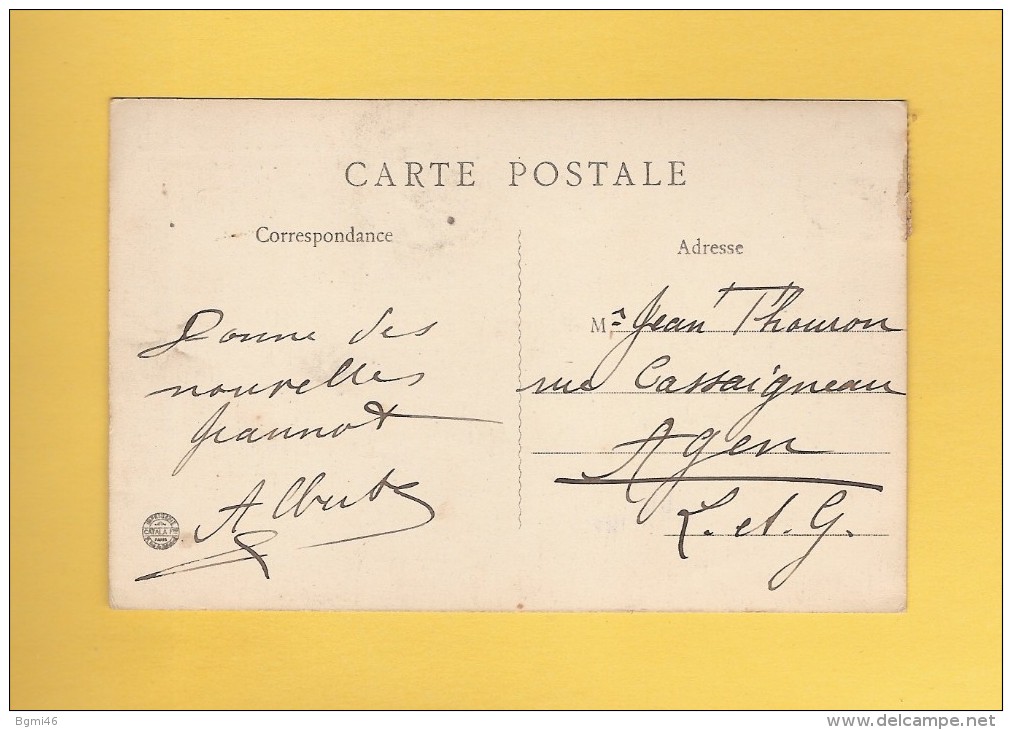 CARTE POSTALE
Correspondance
Donne des
nouvelles
Jeannot
Albert
CATALA Fres
PARIS
Adresse
Mr Jean Thouron
rue Cassaigneau
Agen
L. et G.
Bgmi46
www.delcampe.net